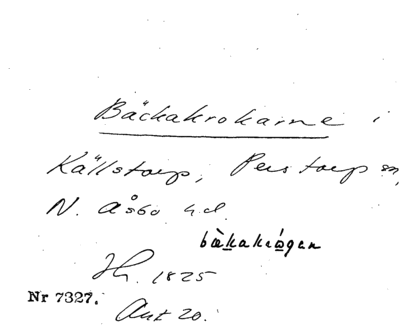 Bäckakrokarne i
Källstorp, Perstorp sn,
N. Åsbo hd.
bàkakrógan
Jh. 1825
Nr 7327.
Akt 20.